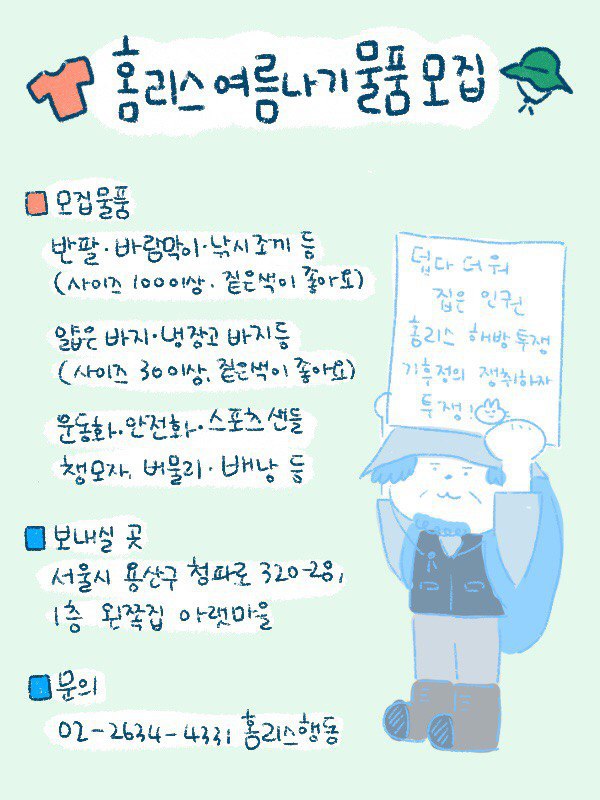 홈리스 여름나기 물품 모집
모집물품
반팔·바람막이·낚시조끼 등
(사이즈 100이상. 짙은색이 좋아요)
얇은 바지·냉장고 바지 등
(사이즈 30이상. 짙은색이 좋아요)
운동화·안전화·스포츠샌들
챙모자. 버물리·배낭 등
보내실 곳
서울시 용산구 청파로 320-28,
1층 왼쪽집 아랫마을
문의
02-2634-4331 홈리스행동
덥다 더워
집은 인권
홈리스 해방 투쟁
기후정의 쟁취하자
투쟁!